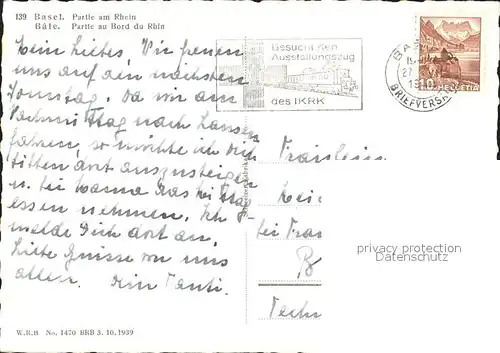 139 Basel. Partie am Rhein
Bâle. Partie au Bord du Rhin
Mein Liebes, Wir freuen
uns auf den nächsten
Sonntag. Da wir am
Nachmittag nach Lausen
fahren, so möchte ich Dich
bitten dort auszusteigen
u. bei Hanna das
essen nehmen. Ich
melde Dich dort an.
Liebe Grüsse von uns
allen. Dein Tanti.
Besucht den
Ausstellungszug
des IKRK
BRIEFVERSA
10 HELVETIA
Fräulein
bei Frau
B
privacy protection
Datenschutz
W.R.B. No. 1470 BRB 3. 10. 1939